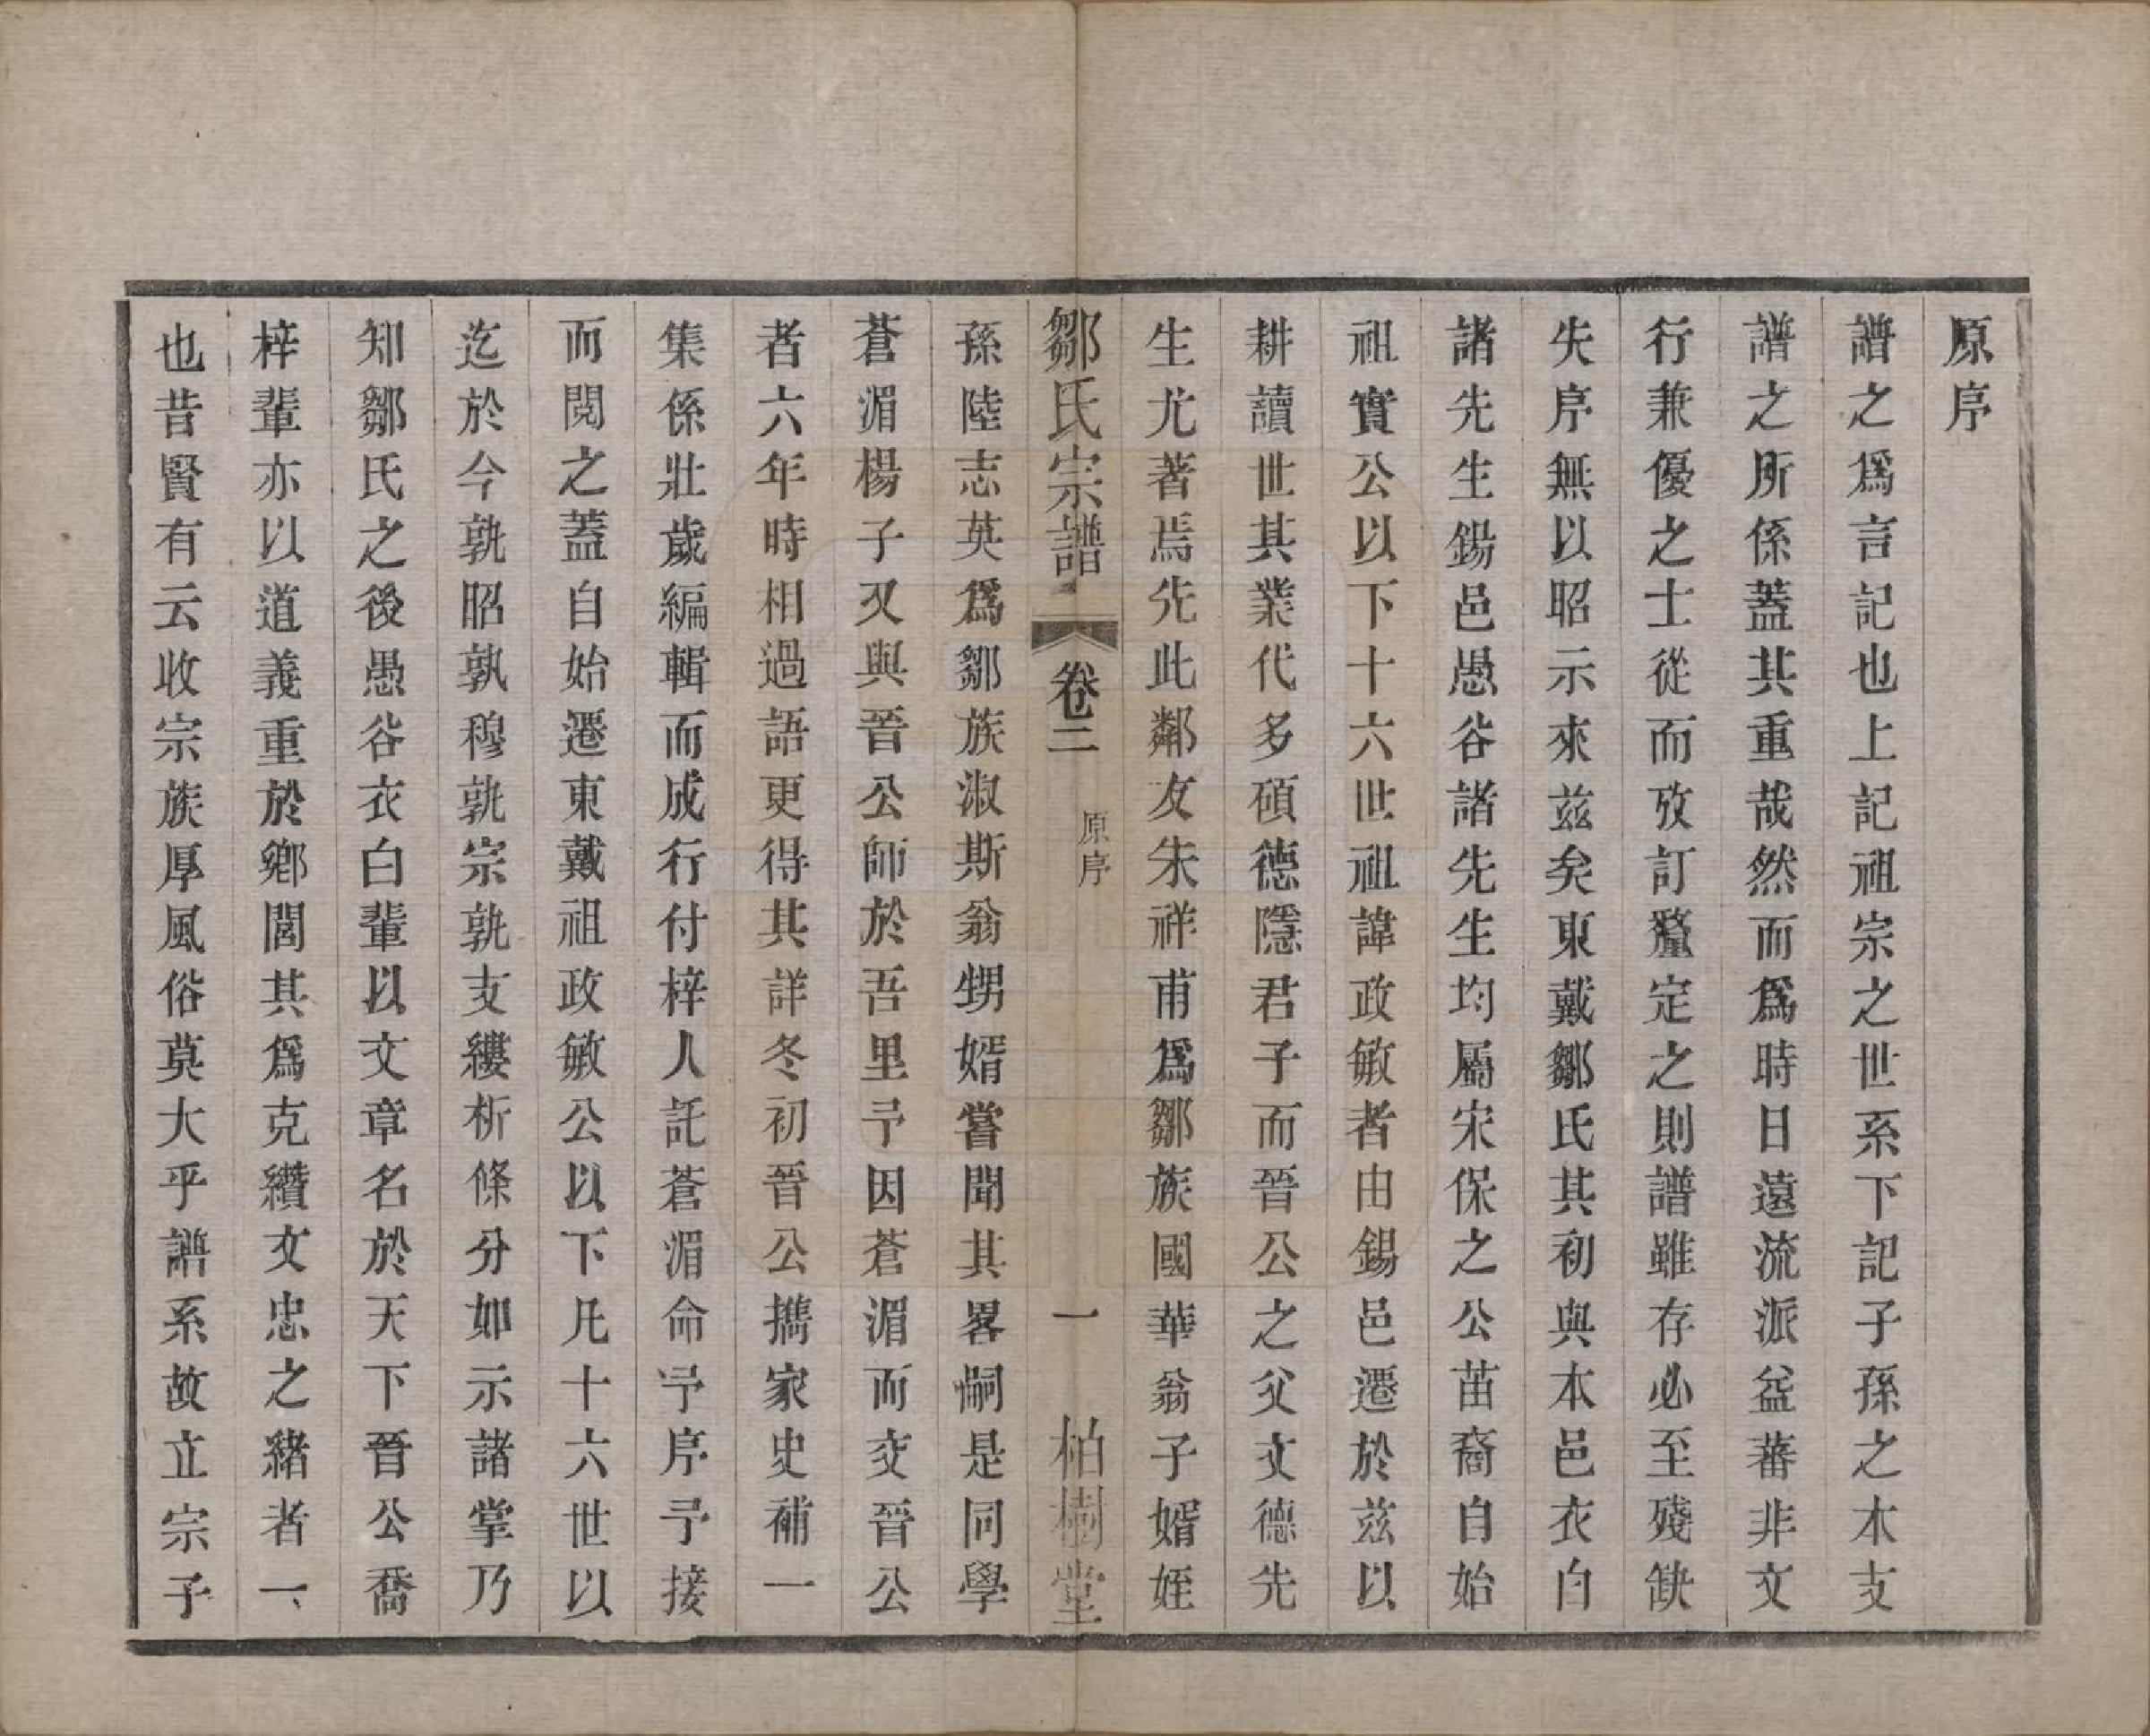 原序
譜之爲言記也上記祖宗之世系下記子孫之木支
譜之所係蓋其重哉然而爲時日遠流派益蕃非文
行兼優之士從而攷訂釐定之則譜雖存必至殘缺
失序無以昭示來兹矣東戴鄒氏其初與本邑衣白
諸先生錫邑愚谷諸先生均屬宋保之公苗裔自始
祖實公以下十六世祖諱政敏者由錫邑遷於兹以
耕讀世其業代多碩德隱君子而晉公之父文德先
生尤著焉先此鄰友朱祥甫爲鄒族國華翁子婿姪
鄒氏宗譜 卷二 原序 一 柏樹堂
孫陸志英爲鄒族淑斯翁甥婿嘗聞其畧嗣是同學
蒼湄楊子又與晉公師於吾里予因蒼湄而交晉公
者六年時相過語更得其詳冬初晉公攜家史補一
集係壯歲編輯而成行付梓人託蒼湄命予序予接
而閱之蓋自始遷東戴祖政敏公以下凡十六世以
迄於今孰昭孰穆孰宗孰支縷析條分如示諸掌乃
知鄒氏之後愚谷衣白輩以文章名於天下晉公喬
梓輩亦以道義重於鄉閭其爲克纘文忠之緒者一
也昔賢有云收宗族厚風俗莫大乎譜系故立宗子